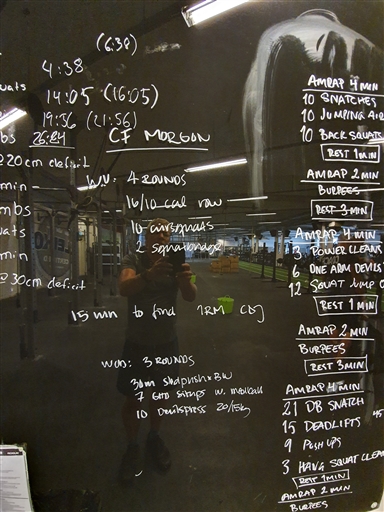 (6:38)
4:38
uats
14:05 (16:05)
19:36 (21:56)
mbs 26:24
@20cm deficit
min
mbs
uats
min
@30cm deficit
CF MORGON
WU: 4 ROUNDS
16/10 cal row
16 airsquats
2
15 min to find 1RM C&J
WOD: 3 ROUNDS
30m sledpush x BW
7 GHD Situps w. medball
10 Devilspress 20/15kg
AMRAP 4 MIN
10 SNATCHES
10 JUMPING AIR
10 BACK SQUATS
REST 1 MIN
AMRAP 2 MIN
BURPEES
REST 3 MIN
AMRAP 4 MIN
3 POWER CLEANS
6 ONE ARM DEVILS
12 SQUAT JUMP O
REST 1 MIN
AMRAP 2 MIN
BURPEES
REST 3 MIN
AMRAP 4 MIN
21 DB SNATCH
15 DEADLIFTS 45
9 PUSH UPS
3 HANG SQUAT CLEAN
REST 1 MIN
AMRAP 2 MIN
BURPEES